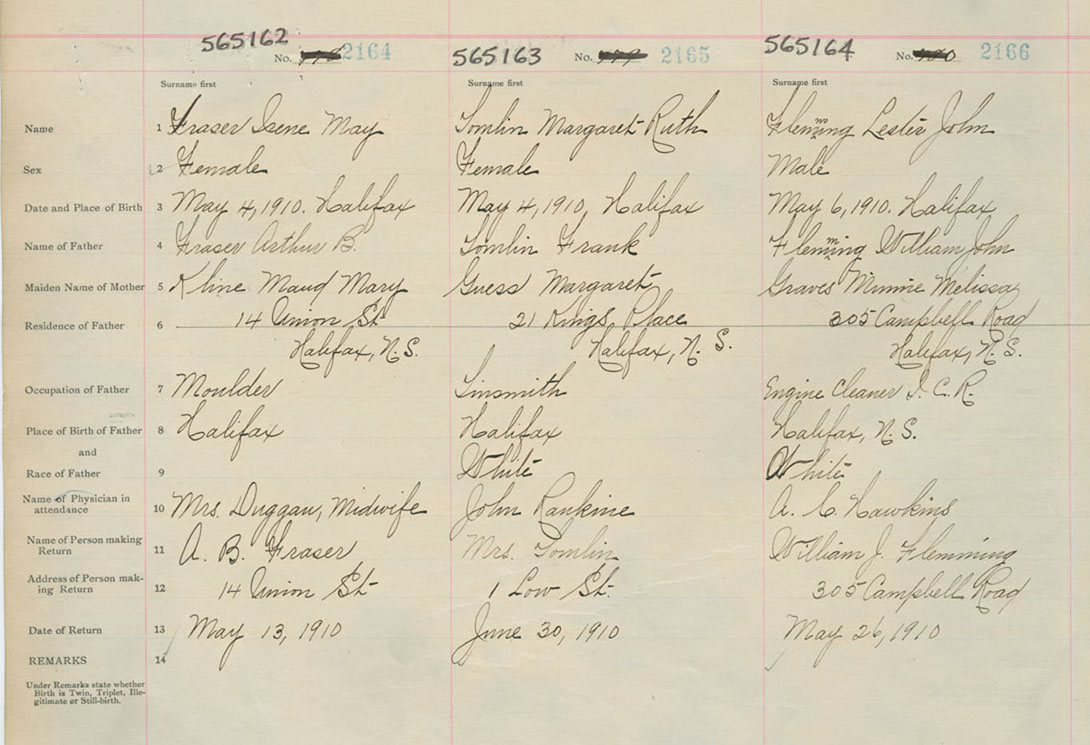 565162 No. 2164 565163 No. 2165 565164 No. 2166
Surname first Surname first Surname first
Name 1 Fraser Irene May Tomlin Margaret Ruth Flemming Lester John
Sex 2 Female Female Male
Date and Place of Birth 3 May 4, 1910. Halifax May 4, 1910, Halifax May 6, 1910. Halifax
Name of Father 4 Fraser Arthur B. Tomlin Frank Flemming William John
Maiden Name of Mother 5 Kline Maud Mary Guess Margaret Graves Minnie Melissa
Residence of Father 6 14 Union St 21 Kings Place 305 Campbell Road
Halifax, N.S. Halifax, N.S. Halifax, N.S.
Occupation of Father 7 Moulder Tinsmith Engine Cleaner I.C.R.
Place of Birth of Father 8 Halifax Halifax Halifax, N.S.
and
Race of Father 9 White White
Name of Physician in
attendance 10 Mrs. Duggan, Midwife John Rankine A. C. Hawkins
Name of Person making
Return 11 A. B. Fraser Mrs. Tomlin William J. Flemming
Address of Person mak-
ing Return 12 14 Union St 1 Low St. 305 Campbell Road
Date of Return 13 May 13, 1910 June 30, 1910 May 26, 1910
REMARKS 14
Under Remarks state whether
Birth is Twin, Triplet, Ille-
gitimate or Still-birth.